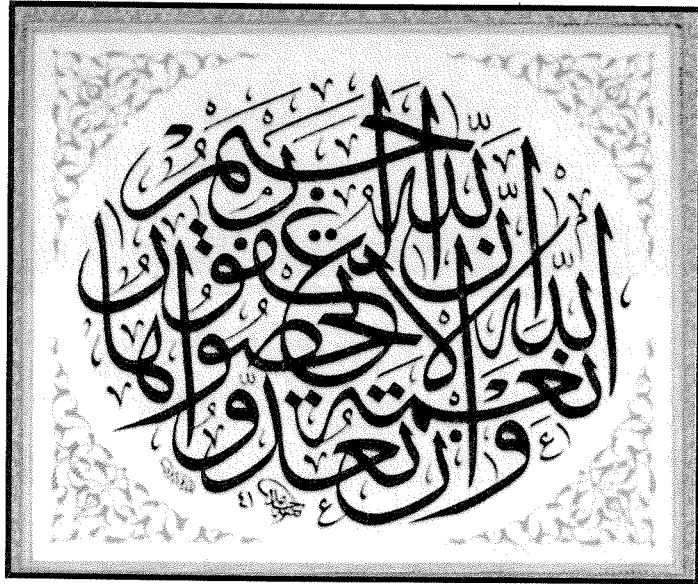 وَإِنْ تَعُدُّوا
نِعْمَةَ اللَّهِ لَا تُحْصُوهَا
إِنَّ اللَّهَ لَغَفُورٌ رَحِيمٌ